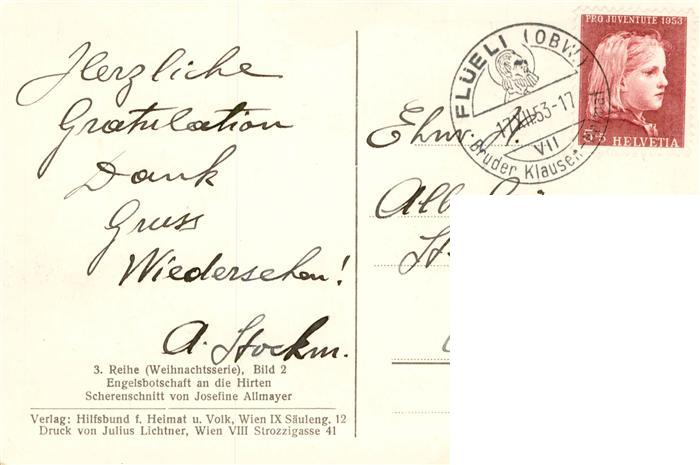 Herzliche
Gratulation
Dank
Gruss
Wiedersehen!
A. Stockm.
3. Reihe (Weihnachtsserie), Bild 2
Engelsbotschaft an die Hirten
Scherenschnitt von Josefine Allmayer
Verlag: Hilfsbund f. Heimat u. Volk, Wien IX Säuleng. 12
Druck von Julius Lichtner, Wien VIII Strozzigasse 41
FLÜELI (OBW.)
17.XII.53-17
VII
Bruder Klausen
PRO JUVENTUTE 1953
5+5 HELVETIA
Ehrw.